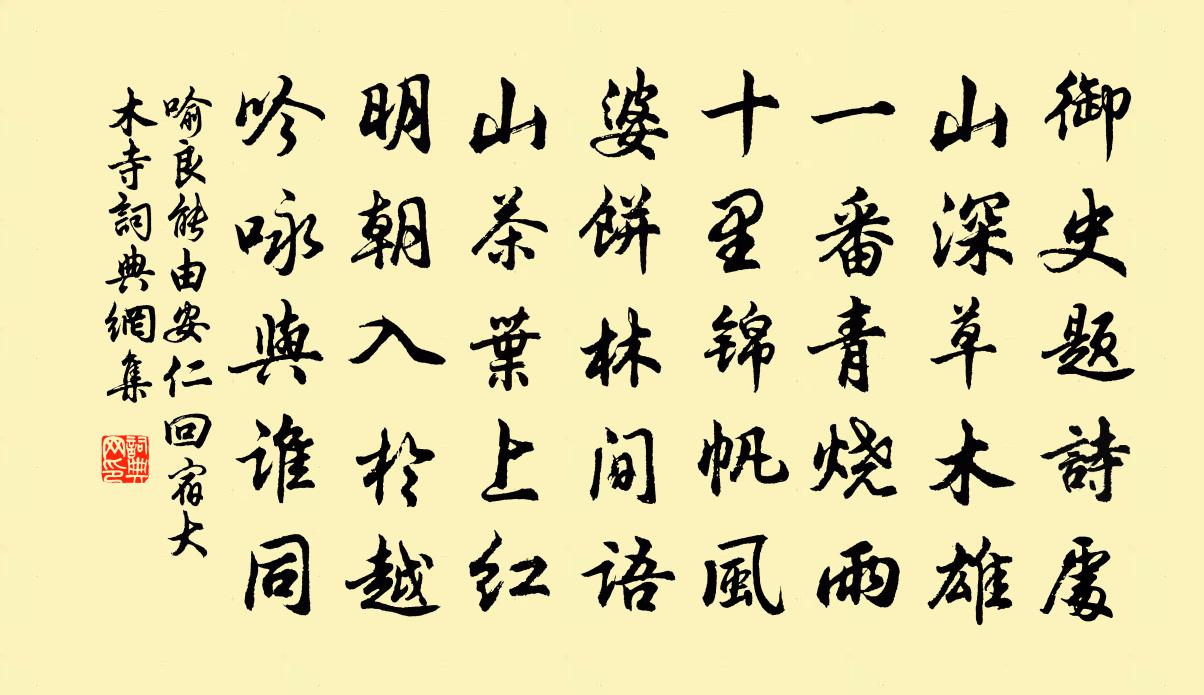 御史题詩處
山深草木雄
一番青烧雨
十里锦帆風
婆餅林間語
山茶葉上红
明朝入於越
吟咏與谁同
喻良能由安仁回宿大
木寺詞典網集
詞典
网印